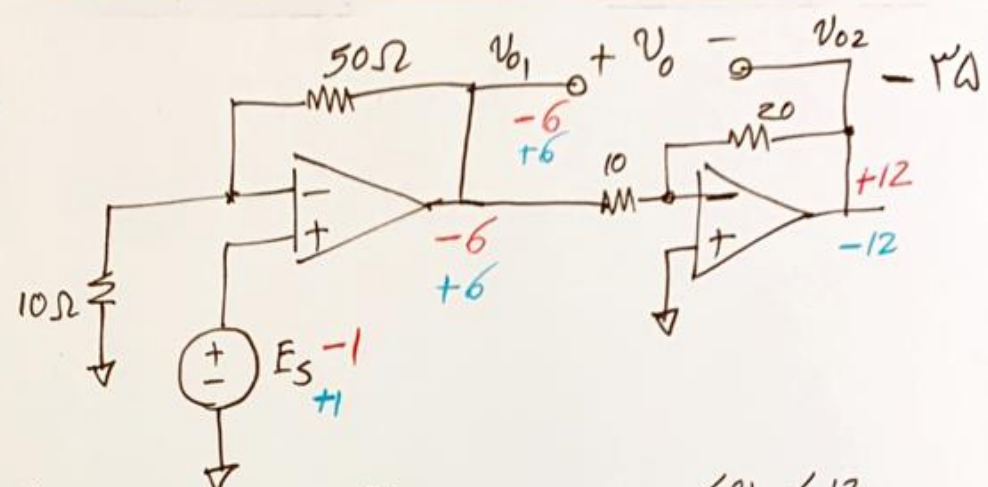 50Ω
V01 + V0 - V02
- ۳۵
-6
+6
20
10
-
+
-
+
+12
-12
-6
+6
10Ω
+
-
Es -1
+1